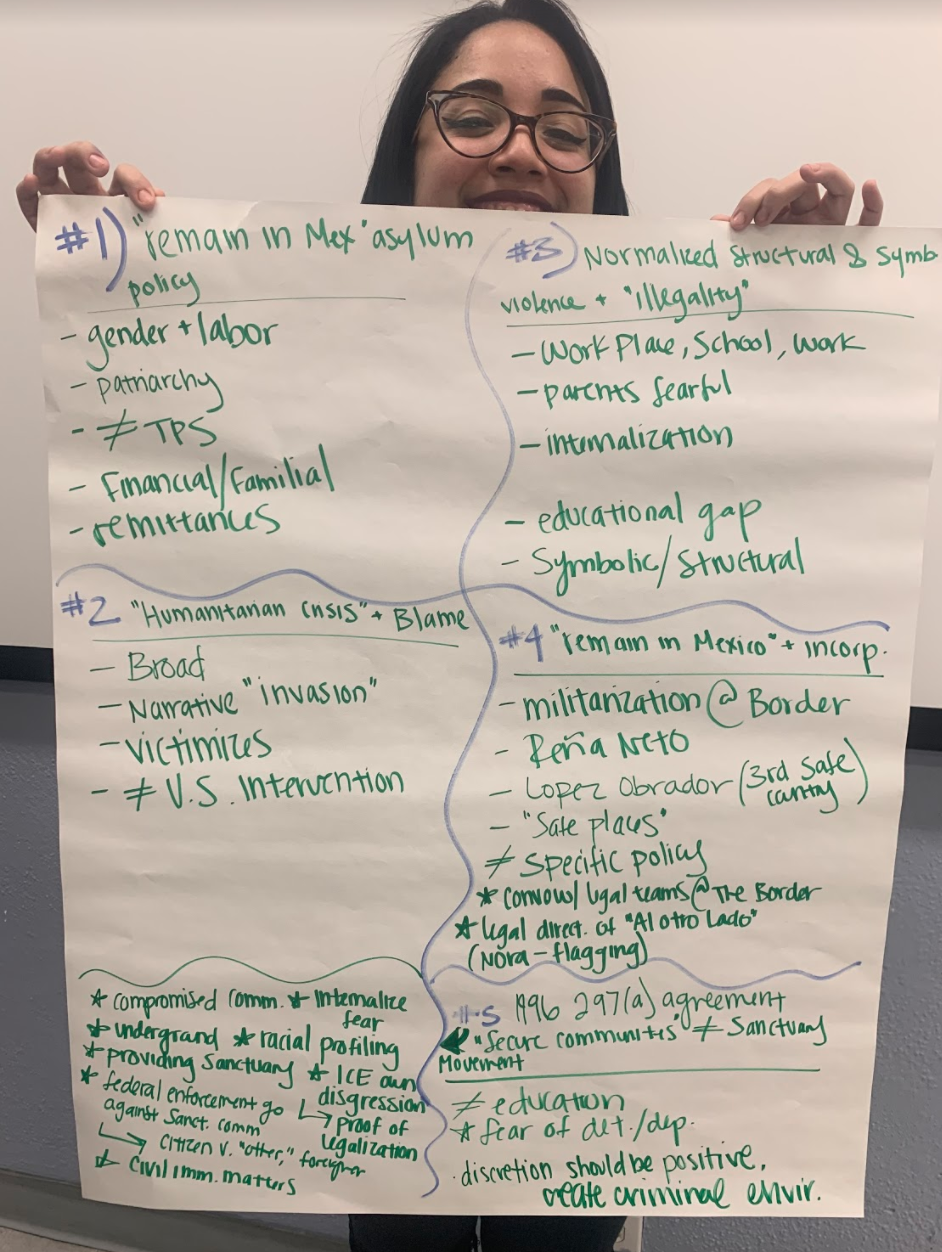 #1) "remain in Mex" asylum
policy
- gender + labor
- patriarchy
- ≠ TPS
- Financial/Familial
- remittances
#2 "Humanitarian Crisis" + Blame
- Broad
- Narrative "invasion"
- victimizes
- ≠ U.S. Intervention
#3) Normalized Structural & Symb
violence + "illegality"
- Work Place, School, Work
- parents fearful
- internalization
- educational gap
- Symbolic/Structural
#4 "remain in Mexico" + incorp.
- militarization @ Border
- Peña Neto
- Lopez Obrador (3rd Safe
country)
- "Safe places"
≠ specific policy
* legal teams @ The Border
* legal direct. of "Al otro Lado"
(Nora - flagging)
#5 1996 297(a) agreement
"Secure communities" ≠ Sanctuary
Movement
≠ education
* fear of det./dep.
· discretion should be positive,
create criminal envir.
* compromised comm. * Internalize
fear
* undergrand * racial profiling
* providing Sanctuary * ICE own
disgression
* federal enforcement go
against Sanct. comm
↳ proof of
legalization
→ Citizen v. "other," foreigner
* Civil imm. matters